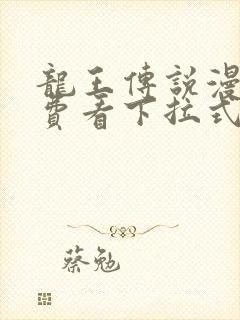 龍王傳說漫
費看下拉式
蔡勉